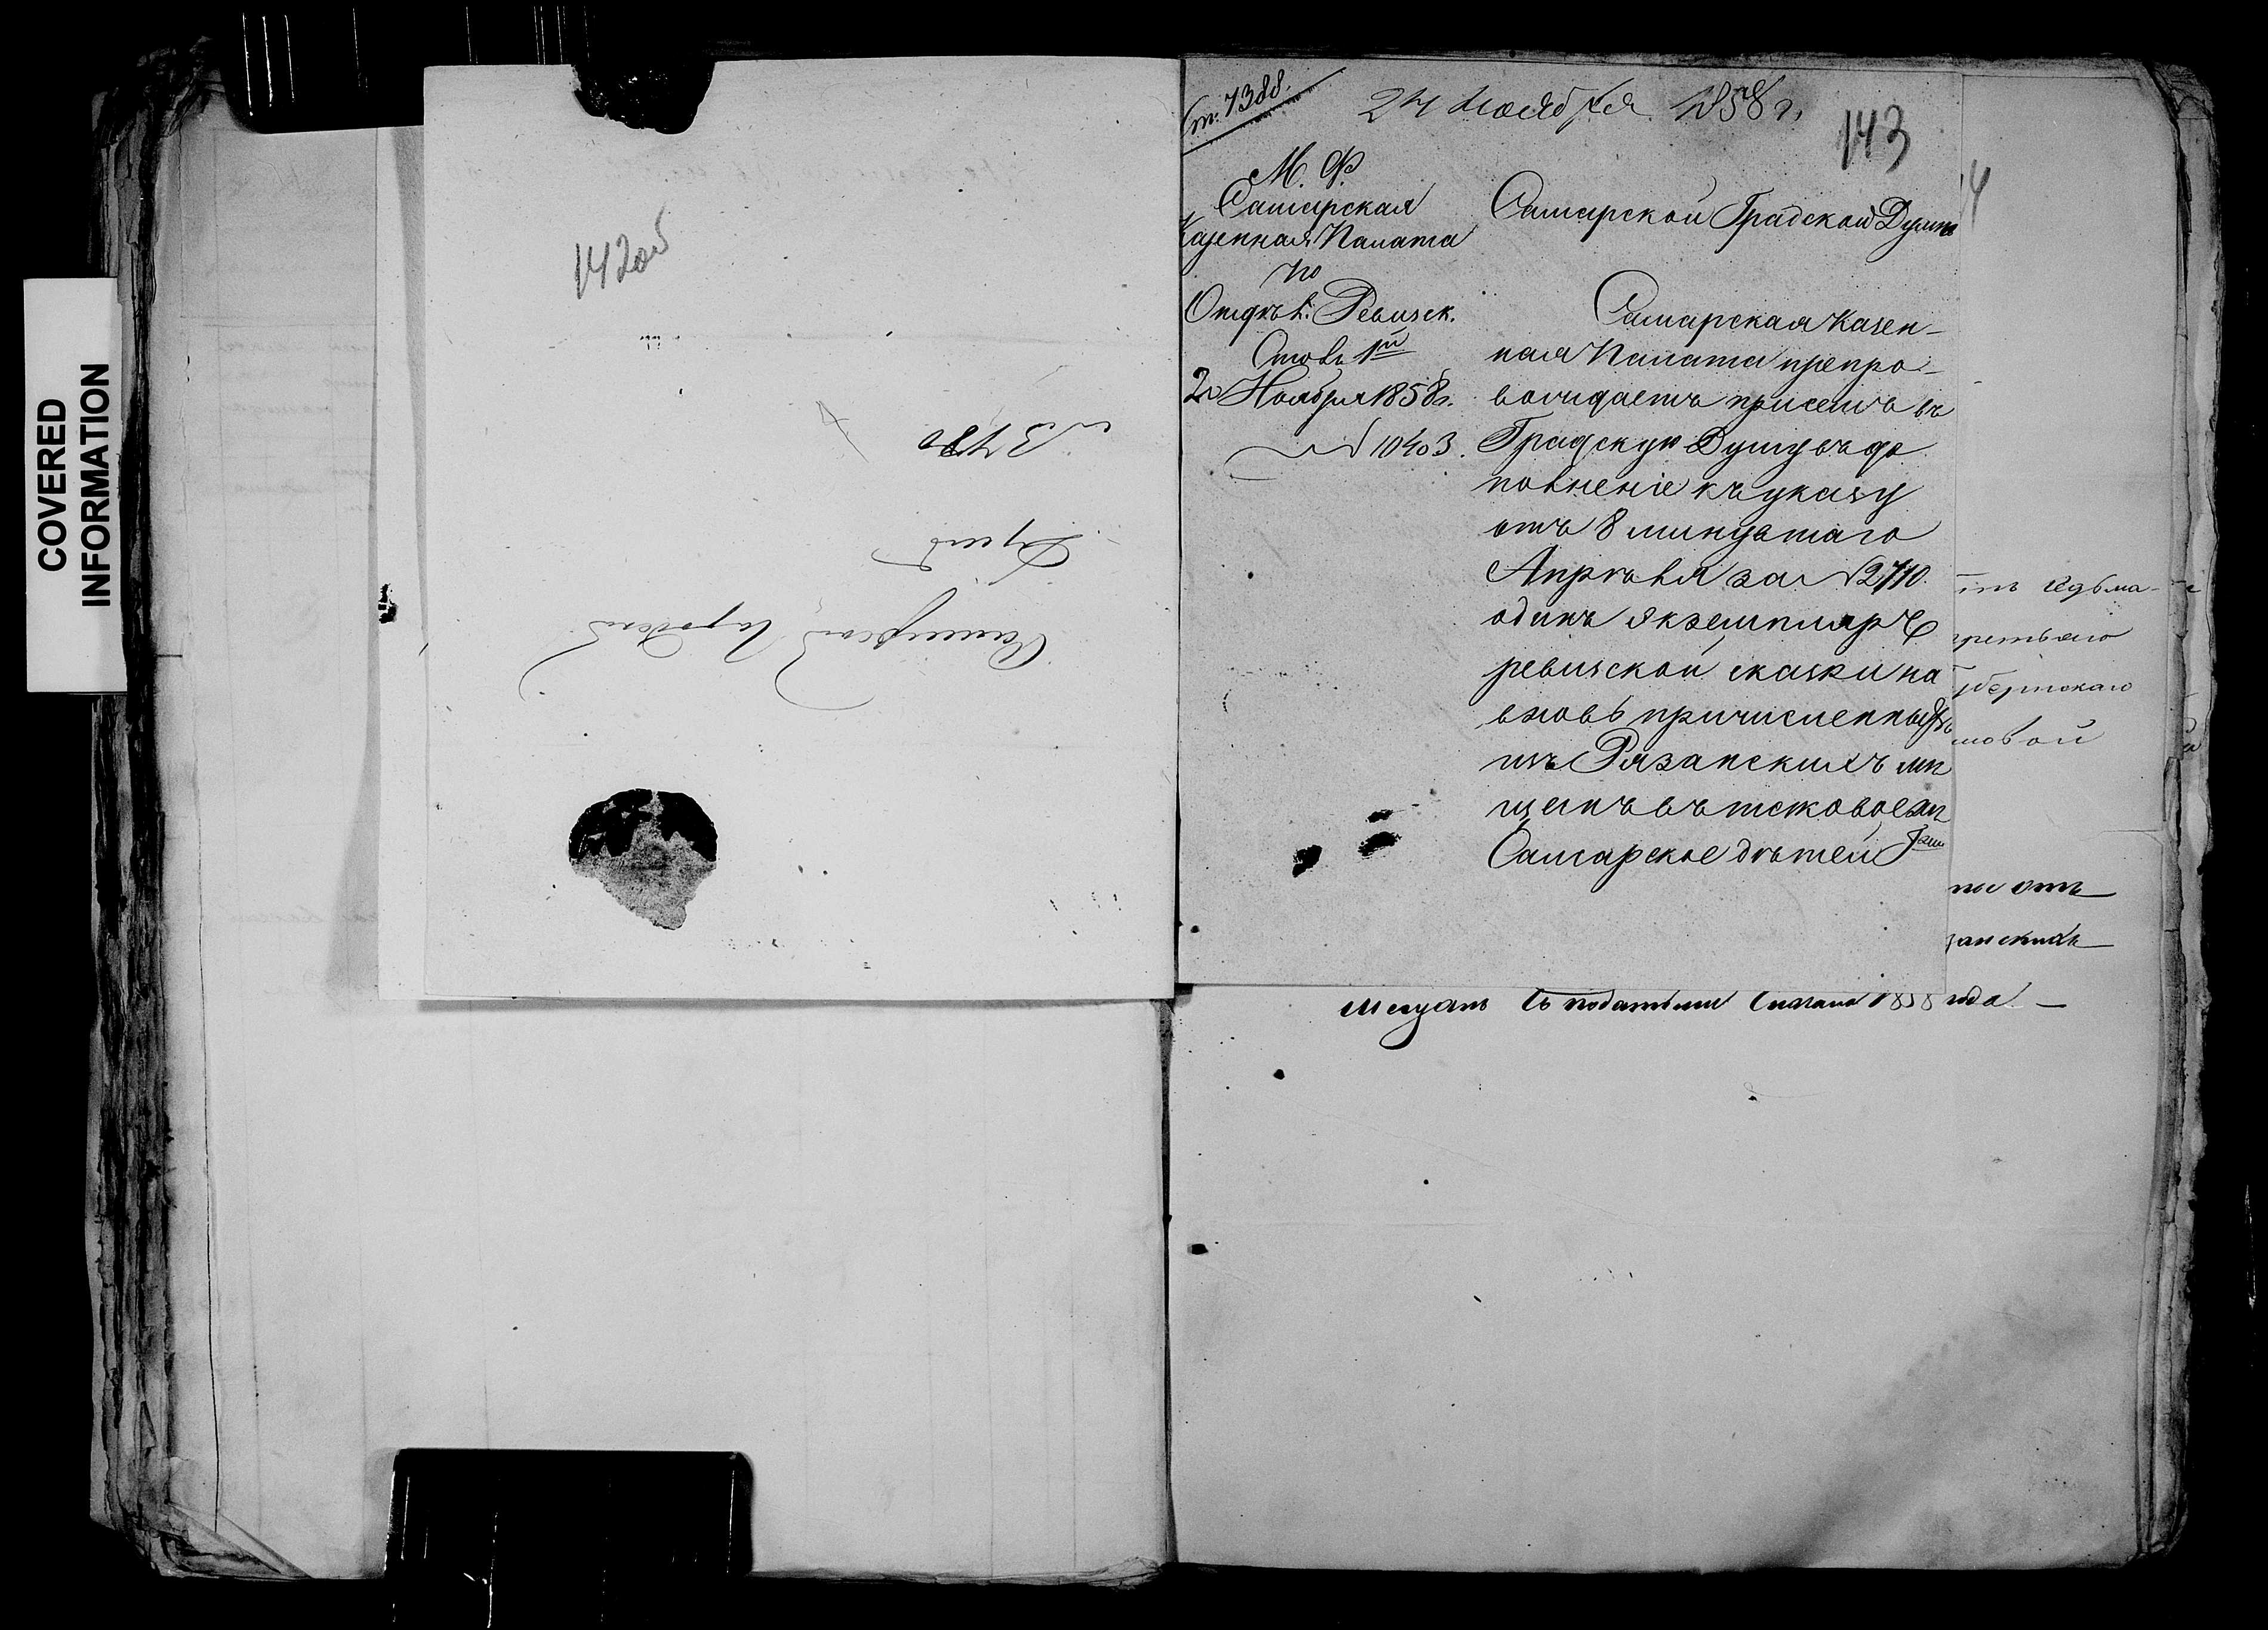 COVERED
INFORMATION
142об
№ 3480
Самарской Градской
Думе
Ст. 7388.
24 Ноября 1858 г.
143
М. Ф.
Самарская
Казенная Палата
по
Отдѣл. Ревизск.
Столъ 1й
20 Ноября 1858 г.
№ 10403.
Самарской Градской Думѣ
Самарская Казен-
ная Палата препро-
вождаетъ присемъ въ
Градскую Думу въ до
полненіе къ указу
отъ 8 минувшаго
Апрѣля за № 2710
одинъ экземпляръ
ревизской сказки на
вновь причисленныхъ
изъ Рязанскихъ мѣ
щанъ въ таковое же
Самарское дѣтей
4
третьяго
мовой
отъ
занскихъ
Мещанъ съ податьми сначала 1858 года —